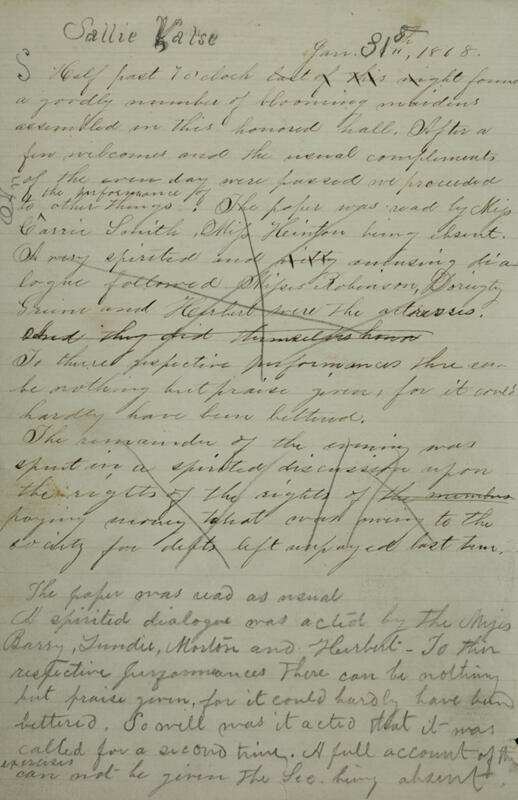 Sallie Kalse
Jan. 31st, 1868.
Half past 7 o'clock last of this night found
a goodly number of blooming maidens
assembled in this honored hall. After a
few welcomes and the usual compliments
of the even day were passed we proceeded
& the performance of
to other things. The paper was read by Miss
Carrie Smith, Miss Heinton being absent.
A very spirited and amusing dia-
logue followed Misses Robinson, Doughty
Grime and Herbert were the actresses.
And they did themselves honor
To there respective performances there can
be nothing but praise given, for it could
hardly have been bettered.
The remainder of the evening was
spent in a spirited discussion upon
the rights of the rights of the members
paying money that was owing to the
society for debts left unpayed last term.
The paper was read as usual
A spirited dialogue was acted by the Misses
Barry, Lundie, Morton and Herbert – To their
respective performances there can be nothing
but praise given, for it could hardly have been
bettered. So well was it acted that it was
called for a second time. A full account of the
exercises
can not be given the Sec. being absent.